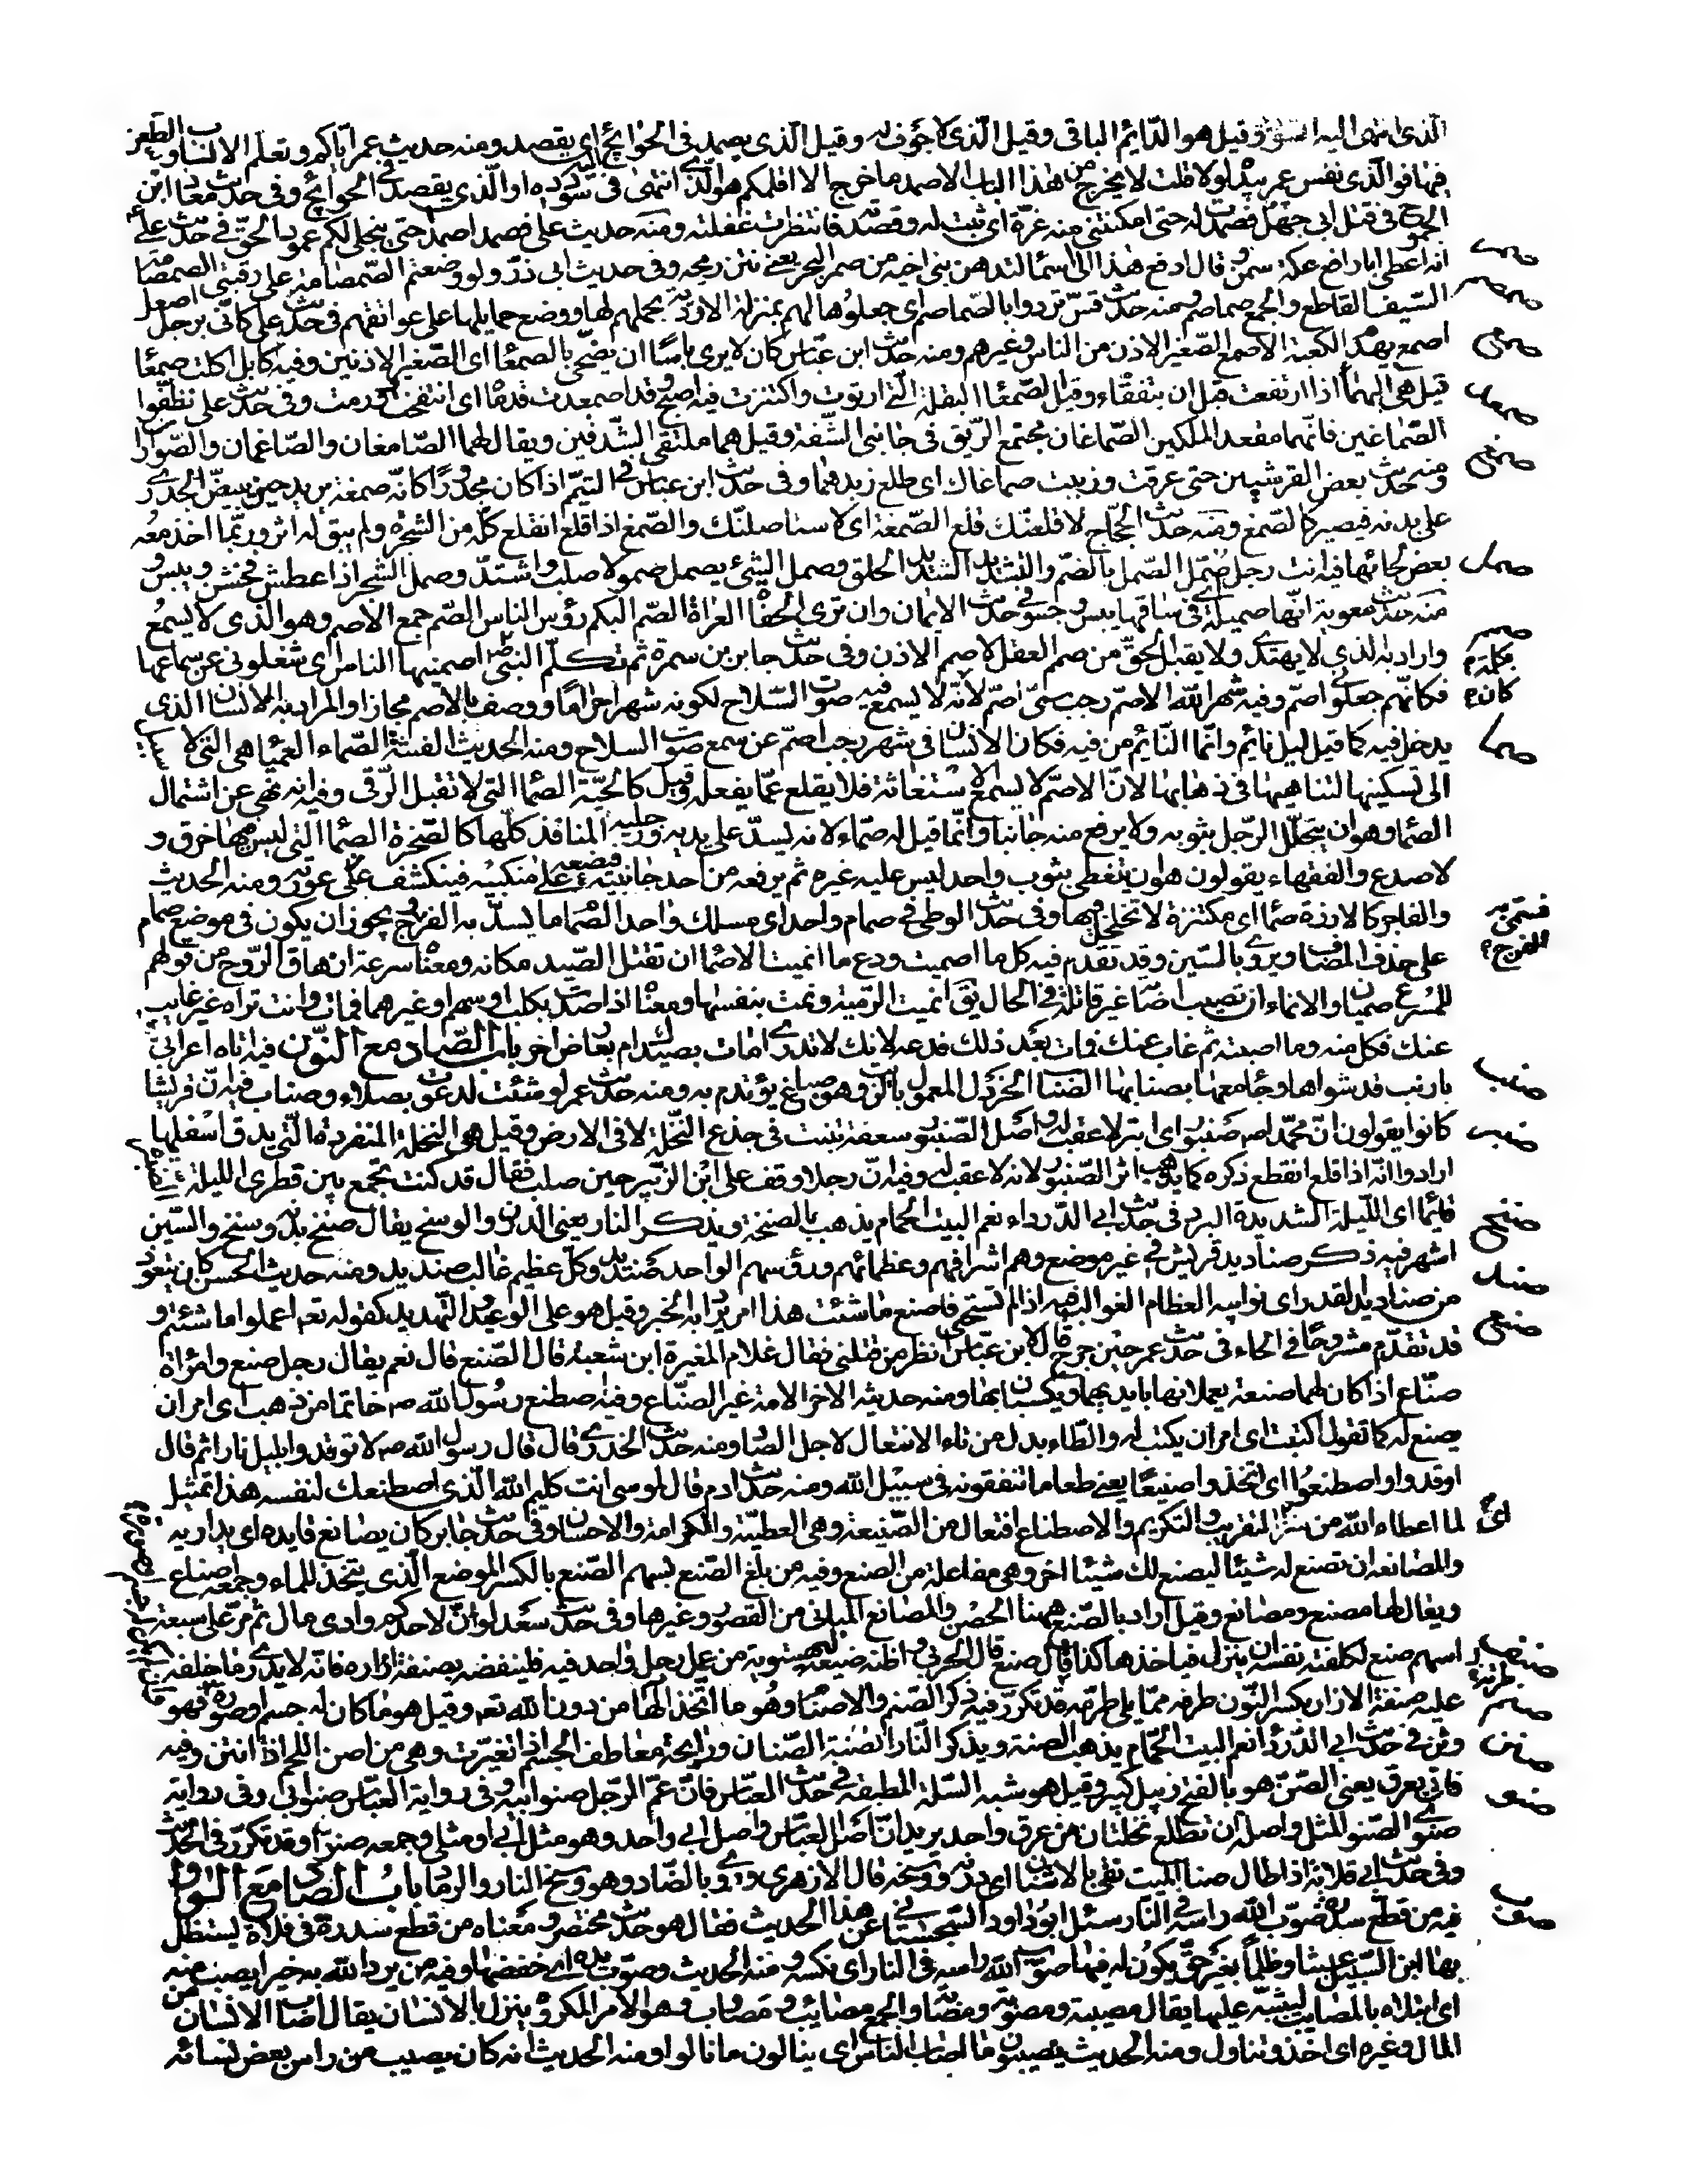 الذى انتهى اليه السؤدد وقيل هو الدّايم الباقى وقيل الّذى لا جوف له وقيل الّذى يصمد فى الحوائج اليه اى يقصد ومنه حديث عمر اياكم وتعلم الانساب والطعن
فيها فوالّذى نفس عمر بيده لو قلت لا يخرج من هذا الباب الا صمد ما خرج الا اقلكم هو الّذى انتهى فى سؤدده او الّذى يقصد فى الحوائج وفى حديث معاذ ابن
الجموح فى قتل ابى جهل فصمدت له حتى امكنتنى منه غرّة اى ثبت له وقصدته فانتظرت غفلته ومنه حديث على فصمدا صمدا حتى ينجلى لكم عمود الحق فى حديث على
انه اعطى ابا رافع عكة سمن وقال ادفع هذا الى اسماء لتدهن بنى اخيه من صمر البحر يعنى نتن ريحه وفى حديث ابى ذرّ لو وضعتم الصّمصامة على رقبتى الصمصامة
السّيف القاطع والجمع صماصم ومنه حديث قسّ تردوا بالصّماصم اى جعلوها لهم بمنزلة الاردية بحملهم لها ووضع حمايلها على عواتقهم فى حديث على كانّى برجل اصعل
اصمع يهدم الكعبة الاصمع الصّغير الاذن من الناس وغيرهم ومنه حديث ابن عبّاس كان لا يرى باسا ان يضحّى بالصمعاء اى الصّغير الاذنين وفيه كابل اكلت صمعا
قيل هى البهمى اذا ارتفعت قبل ان يتفقاء وقيل الصّمعاء البقلة الّتى ارتوت واكتنزت فيه اصبح وقد اصمعدت قدماه اى انتفخت وورمت وفى حديث على نظّفوا
الصّماغين فانّهما مقعد الملكين الصّماغان مجتمع الرّيق فى جانبى الشّفة وقيل هما ملتقى الشّدقين ويقال لهما الصّامغان والصّاغمان والصّواران
ومنه حديث بعض القرشيين حتى عرقت وزبب صماغاك اى طلع زبدهما وفى حديث ابن عباس فى اليتيم اذا كان مجدورا كانّه صمغة يريد حين يبيضّ الجدرى
على بدنه فيصير كالصّمغ ومنه حديث الحجّاج لاقلعنّك قلع الصّمغة اى لاستاصلنّك والصّمغ اذا قلع انقلع كلّه من الشجرة ولم يبق له اثر وربّما اخذ معه
بعض لحائها فيه انت رجل صُمُلّ الصّمل بالضّم والتّشديد الشديد الخلق وصمل الشّىء يصمل صمولا صلب واشتدّ وصمل الشجر اذا عطش فخشن ويبس و
منه حديث معوية انّها صميلة اى فى ساقها يبس وخشونة فى حديث الايمان وان ترى الحفاة العراة الصّم البكم رؤس الناس الصّم جمع الاصم وهو الّذى لا يسمع
واراد به الذى لا يهتدى ولا يقبل الحقّ من صمم العقل لا صمم الاذن وفى حديث جابر بن سمرة ثم تكلّم النبى بكلمة اصمنيها الناس اى شغلونى عن سماعها
فكانّهم جعلونى اصمّ وفيه شهر الله الاصمّ رجب سمّى اصمّ لانّه كان لا يسمع فيه صوت السّلاح لكونه شهرا حراما ووصف بالاصم مجازا والمراد به الانسان الذى
يدخل فيه كما قيل ليل نايم وانّما النّائم من فيه فكان الانسان فى شهر رجب اصمّ عن سمع صوت السلاح ومنه الحديث الفتنة الصّماء العمياء هى الّتى لا سبيل
الى تسكينها لتناهيها فى ذهابها لانّ الاصمّ لا يسمع الاستغاثة فلا يقلع عمّا يفعله وقيل كالحيّة الصّماء التى لا تقبل الرّقى وفيه انه نهى عن اشتمال
الصمّاء وهو ان يتجلّل الرّجل بثوبه ولا يرفع منه جانبا وانّما قيل له صمّاء لانه يسدّ على يديه ورجليه المنافذ كلّها كالصّخرة الصمّاء الّتى ليس فيها خرق و
لا صدع والفقهاء يقولون هو ان يتغطى بثوب واحد ليس عليه غيره ثم يرفعه من احد جانبيه فيضعه على منكبيه فينكشف عورته ومنه الحديث
والفاجر كالارزة صمّاء اى مكتنزة لا تخلخل فيها وفى حديث الوطى فى صمام واحد اى مسلك واحد الصّمام ما يسدّ به الفرجة فسمّى به الفرج ويجوز ان يكون فى موضع صمام
على حذف المضاف ويروى بالسّين وقد تقدّم فيه كل ما اصميت ودع ما انميت الاصماء ان تقتل الصّيد مكانه ومعناه سرعة ازهاق الرّوح من قولهم
للمسرع صميان والانماء ان تصيب اصابة غير قاتلة فى الحال يقال انميت الرّمية ونمت بنفسها ومعناه اذا صدت بكلب او سهم او غيرهما فمات وانت تراه غير غايب
عنك فكل منه وما اصبته ثم غاب عنك فمات بعد ذلك فدعه لانك لا تدرى امات بصيدك ام بعارض اخر باب الصّاد مع النّون فيه اتاه اعرابى
بارنب قد شواها وجاء معها بصنابها الصّناب الخردل المعمول بالزيت وهو صباغ يؤتدم به ومنه حديث عمر لو شئت لدعوت بصلاء وصناب فيه انّ قريشا
كانوا يقولون انّ محمّدا صم صنبور اى ابتر لا عقب له واصل الصّنبور سعفة تنبت فى جذع النّخلة لا فى الارض وقيل هى النخلة المنفردة الّتى يدق اسفلها
ارادوا انّه اذا قلع انقطع ذكره كما يذهب اثر الصّنبور لانه لا عقب له وفيه انّ رجلا وقف على ابن الزّبير حين صلب فقال قد كنت تجمع بين قطرى الليلة الصّنبرة
قائما اى اللّيلة الشديدة البرد فى حديث ابى الدّرداء نعم البيت الحمام يذهب بالصنخة ويذكر النار يعنى الدرن والوسخ يقال صنخ بدنه وسنخ والسّين
اشهر فيه ذكر صناديد قريش فى غير موضع وهم اشرافهم وعظمائهم ورؤسهم الواحد صنديد وكلّ عظيم غالب صنديد ومنه حديث الحسن كان يتعوّذ
من صناديد القدر اى نوايبه العظام الغوالب فيه اذا لم تستحى فاصنع ما شئت هذا امر يراد به الخبر وقيل هو على الوعيد والتّهديد كقوله تعه اعملوا ما شئتم و
قد تقدّم مشروحا فى الحاء فى حديث عمر حين جرح قال لابن عبّاس انظر من قتلنى فقال غلام المغيرة ابن شعبة قال الصّنع قال نعم يقال رجل صنع وامراة
صنّاع اذا كان لهما صنعة يعملانها بايديهما ويكسبان بها ومنه حديثه الاخر الامة غير الصنّاع وفيه اصطنع رسول الله صم خاتما من ذهب اى امر ان
يصنع له كما تقول اكتتب اى امر ان يكتب له والطّاء بدل من تاء الافتعال لاجل الصّاد ومنه حديث الخدرى قال قال رسول الله صم لا توقدوا بليل نارا ثم قال
اوقدوا واصطنعوا اى اتّخذوا صنيعا يعنى طعاما تنفقونه فى سبيل الله ومنه حديث ادم قال لموسى انت كليم الله الّذى اصطنعك لنفسه هذا تمثيل
لما اعطاه الله من منزلة التّقريب والتكريم والاصطناع افتعال من الصّنيعة وهى العطيّة والكرامة والاحسان وفى حديث جابر كان يصانع قايده اى يداريه
والمصانعة ان تصنع له شيئا ليصنع لك شيئا اخر وهى مفاعلة من الصنع وفيه من بلغ الصّنع بسهم الصّنع بالكسر الموضع الّذى يتّخذ للماء وجمعه اصناع
ويقال لها مصنع ومصانع وقيل اراد بالصّنع ههنا الحصن والمصانع المبانى من القصور وغيرها وفى حديث سعد لو انّ لاحدكم وادى مال ثم مرّ على سبعة
اسهم صنع لكلفته نفسه ان ينزل فياخذها كذا قال صنع قال الحربى واظنه صيغة اى مستوية من عمل رجل واحد فيه فلينفضه بصنفة ازاره فانّه لا يدرى ما خلفه
عليه صنفة الازار بكسر النّون طرفه ممّا يلى طرّته قد تكرّر فيه ذكر الصّنم والاصنام وهو ما اتّخذ الها من دون الله تعه وقيل هو ما كان له جسم او صورة فهو
وثن فى حديث ابى الدّرداء نعم البيت الحمّام يذهب الصنة ويذكر النّار الصّنة الصّنان ورايحة معاطف الجسم اذا تغيّرت وهى من اصن اللحم اذا انتن وفيه
فاتى بعرق يعنى الصّنّ هو بالفتح زبيل كبير وقيل هو شبه السّلّة المطبقة فى حديث العبّاس فانّ عمّ الرّجل صنو ابيه وفى رواية العبّاس صنو ابى وفى رواية
صنوى الصّنو المثل واصله ان تطلع نخلتان من عرق واحد يريد انّ اصل العبّاس واصل ابى واحد وهو مثل ابى او مثلى وجمعه صنوان وقد تكرّر فى الحديث
وفى حديث ابى قلابة اذا طال صناء الميّت نقّى بالاشنان اى درنه ووسخه قال الازهرى وروى بالصّاد وهو وسخ النار والرماد باب الصّاد مع الواو
فيه من قطع سدرة صوّب الله راسه فى النّار سئل ابو داود السّجستانى عن هذا الحديث فقال هو حديث مختصر ومعناه من قطع سدرة فى فلاة يستظل
بها ابن السّبيل عبثا وظلما بغير حقّ يكون له فيها صوّب الله راسه فى النار اى نكسه ومنه الحديث وصوّب يده اى خفضها وفيه من يرد الله به خيرا يصب منه
اى ابتلاه بالمصايب ليثيبه عليها يقال مصيبة ومصوبة ومصابة والجمع مصايب ومصاوب وهو الامر المكروه ينزل بالانسان يقال اصاب الانسان من
المال وغيره اى اخذ وتناول ومنه الحديث يصيبون ما اصاب الناس اى ينالون ما نالوا ومنه الحديث انه كان يصيب من راس بعض نسائه